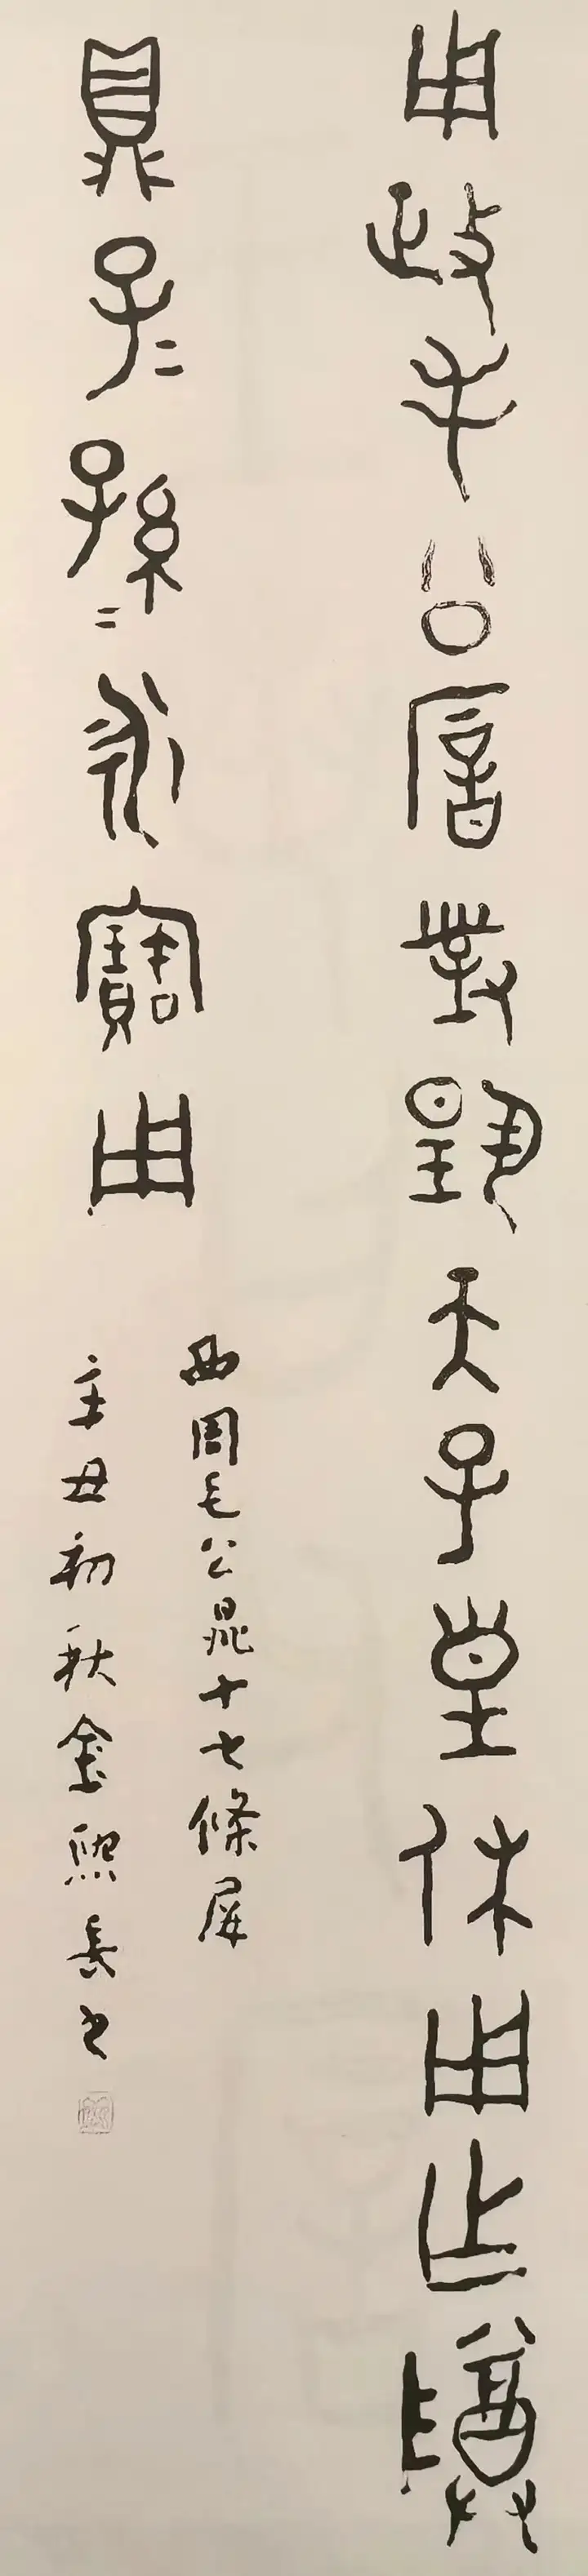 用政毛公厝對揚天子皇休用乍尊
鼎子二孫二永寶用
西周毛公鼎十七條屏
辛丑初秋金熙長书